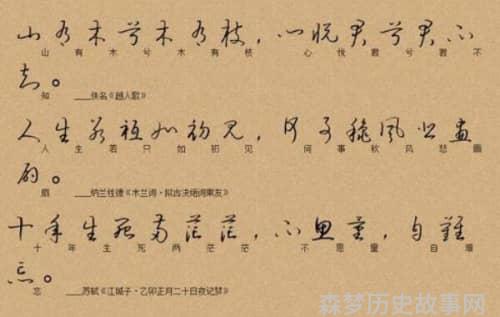 山有木兮木有枝，心悦君兮君不
山有木兮木有枝 心悦君兮君不
知。
知 ___佚名《越人歌》
人生若祗如初见，何事穐風悲畫
人生若只如初见 何事秋风悲画
扇。
扇 ___纳兰性德《木兰词·拟古决绝词柬友》
十年生死两茫茫，不思量，自難
十年生死两茫茫 不思量 自难
忘。
忘 ___苏轼《江城子·乙卯正月二十日夜记梦》
森梦历史故事网